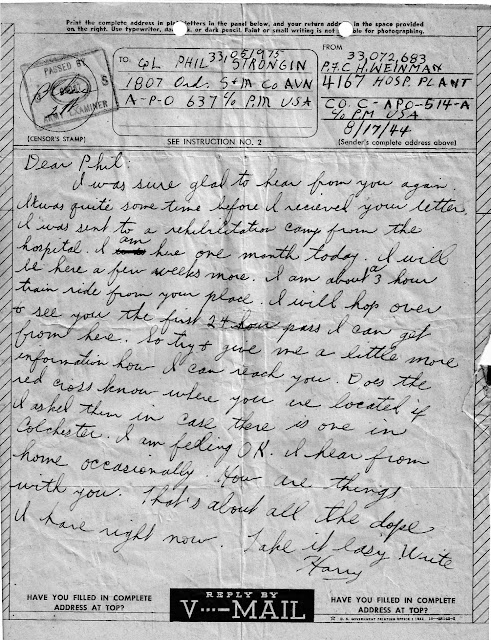 Print the complete address in plain letters in the panel below, and your return address in the space provided
on the right. Use typewriter, dark ink, or dark pencil. Faint or small writing is not suitable for photographing.
PASSED BY
U S
ARMY EXAMINER
(CENSOR'S STAMP)
33,051975
TO QL PHIL STRONGIN
1807 Ord. S+M Co AVN
A-P-O 637 c/o P.M USA
SEE INSTRUCTION NO. 2
FROM
33,072,683
P.F.C H. WEINMAN
4167 HOSP. PLANT
CO. C - APO-514-A
c/o PM USA
8/17/44
(Sender's complete address above)
Dear Phil:
I was sure glad to hear from you again.
It was quite some time before I recieved your letter.
I was sent to a rehibilitation camp from the
hospital. I am here one month today. I will
be here a few weeks more. I am about a 3 hour
train ride from your place. I will hop over
to see you the first 24 hour pass I can get
from here. So try + give me a little more
information how I can reach you. Does the
red cross know where you are located if
I asked them in case there is one in
Colchester. I am feeling OK. I hear from
home occasionally. How are things
with you. That's about all the dope
I have right now. Take it easy. Write
Harry
HAVE YOU FILLED IN COMPLETE
ADDRESS AT TOP?
REPLY BY
V···—MAIL
HAVE YOU FILLED IN COMPLETE
ADDRESS AT TOP?
U. S. GOVERNMENT PRINTING OFFICE